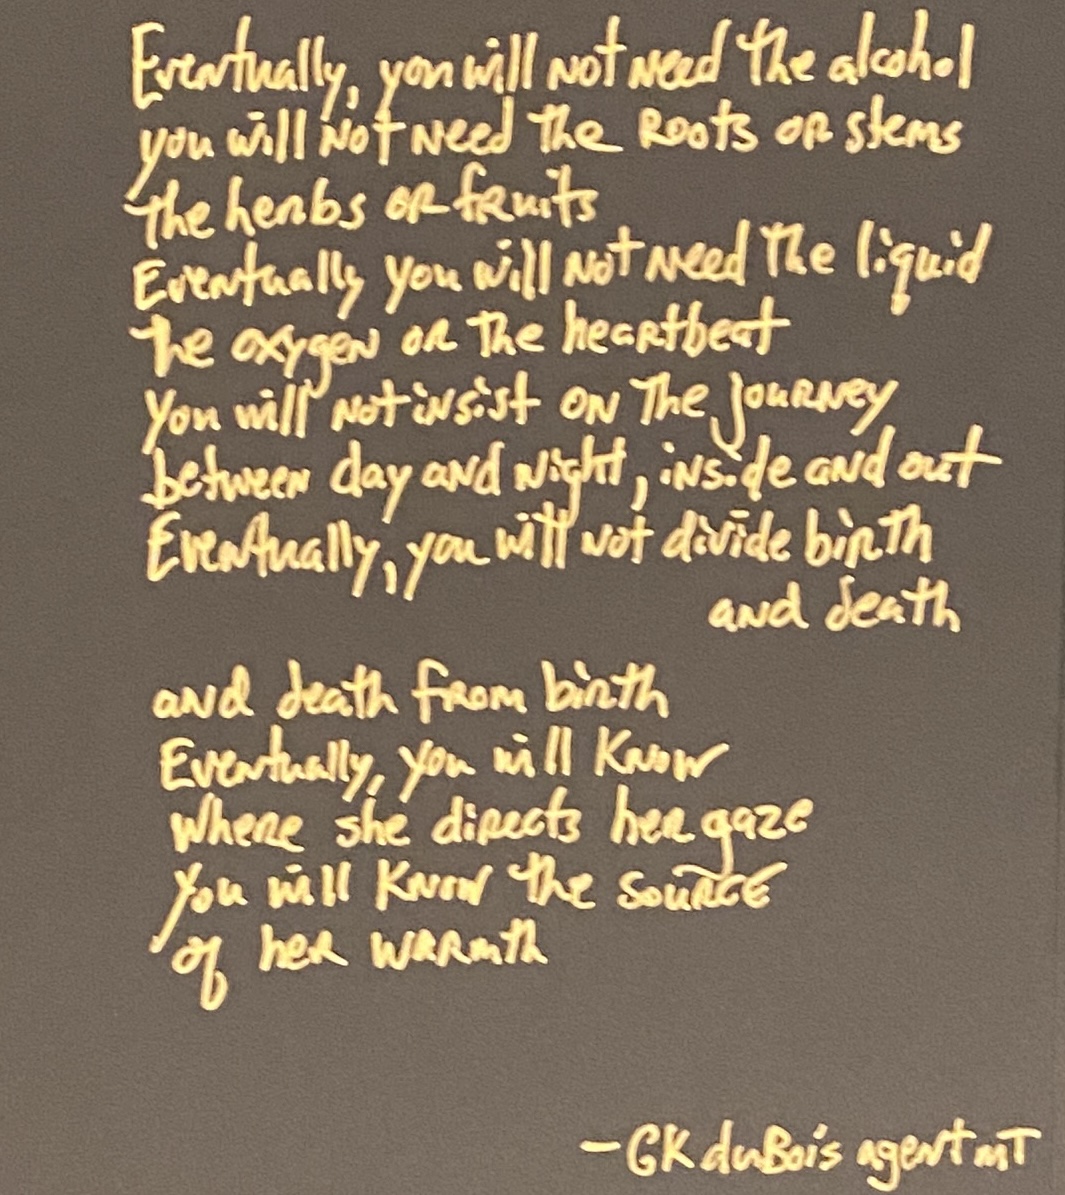 Eventually, you will not need the alcohol
you will not need the roots or stems
the herbs or fruits
Eventually you will not need the liquid
the oxygen or the heartbeat
You will not insist on the journey
between day and night, inside and out
Eventually, you will not divide birth
and death
and death from birth
Eventually, you will know
where she directs her gaze
You will know the source
of her warmth
—GK duBois agent MT